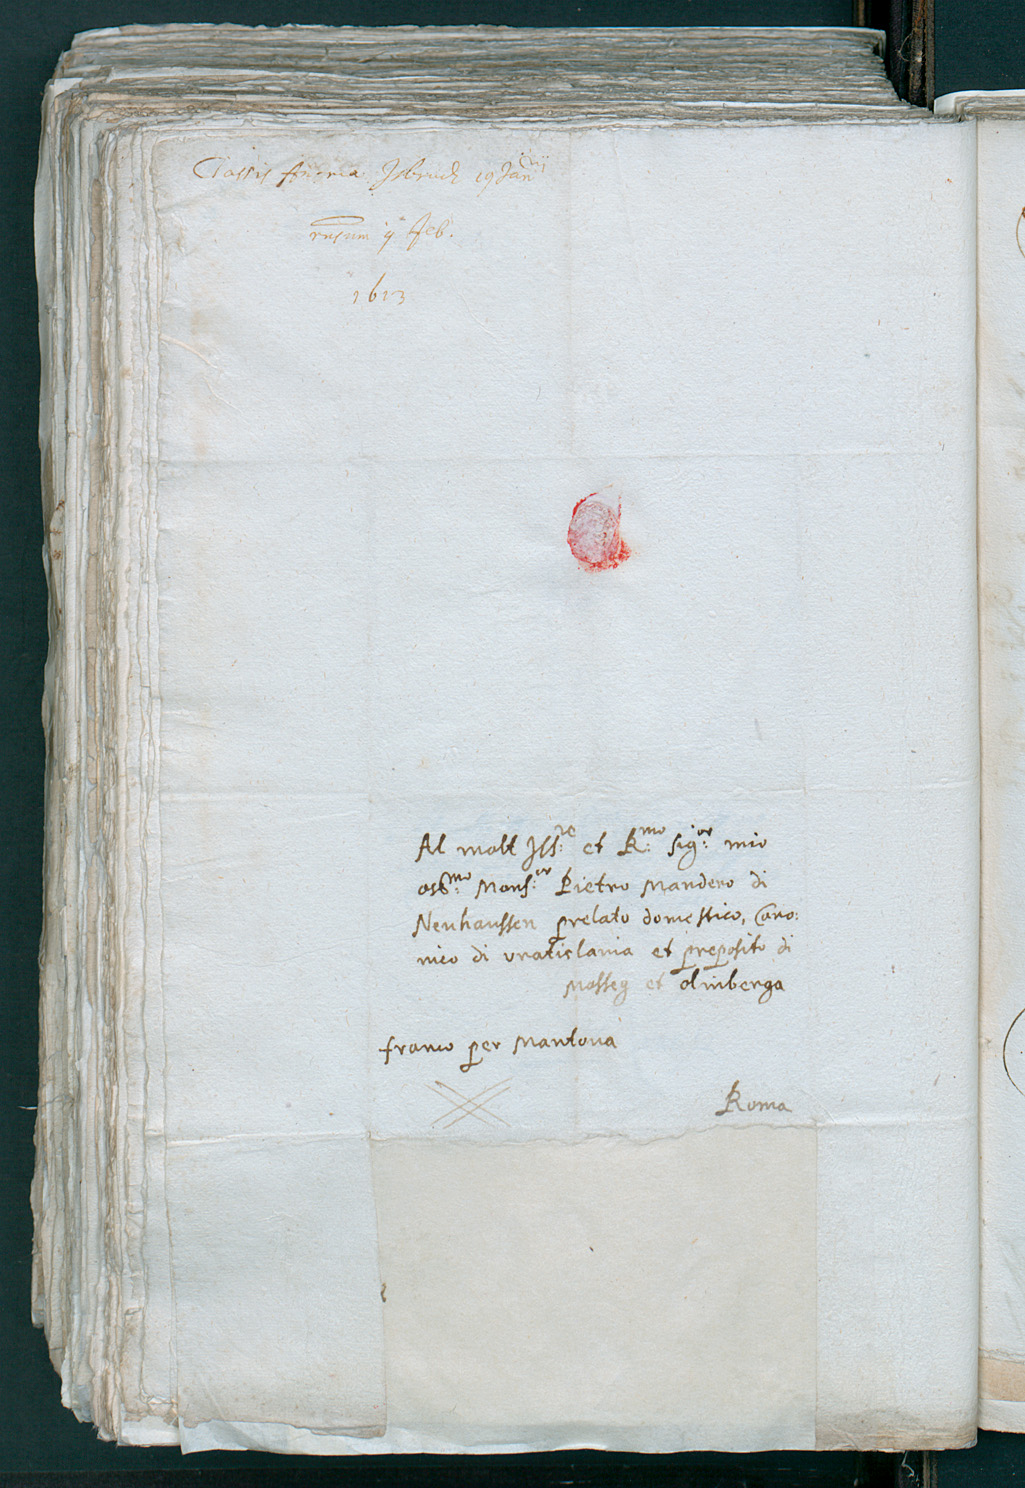 Tassis Isbruck 19 Jan
9 Feb.
1613
Al molt Ill:re et R:mo sig:or mio
oss:mo Mons:or Pietro Mandero di
Neuhaussen prelato domestico, Cano:
nico di vratislauia et preposito di
Mosseg et olmberga
franco per Mantoua
Roma